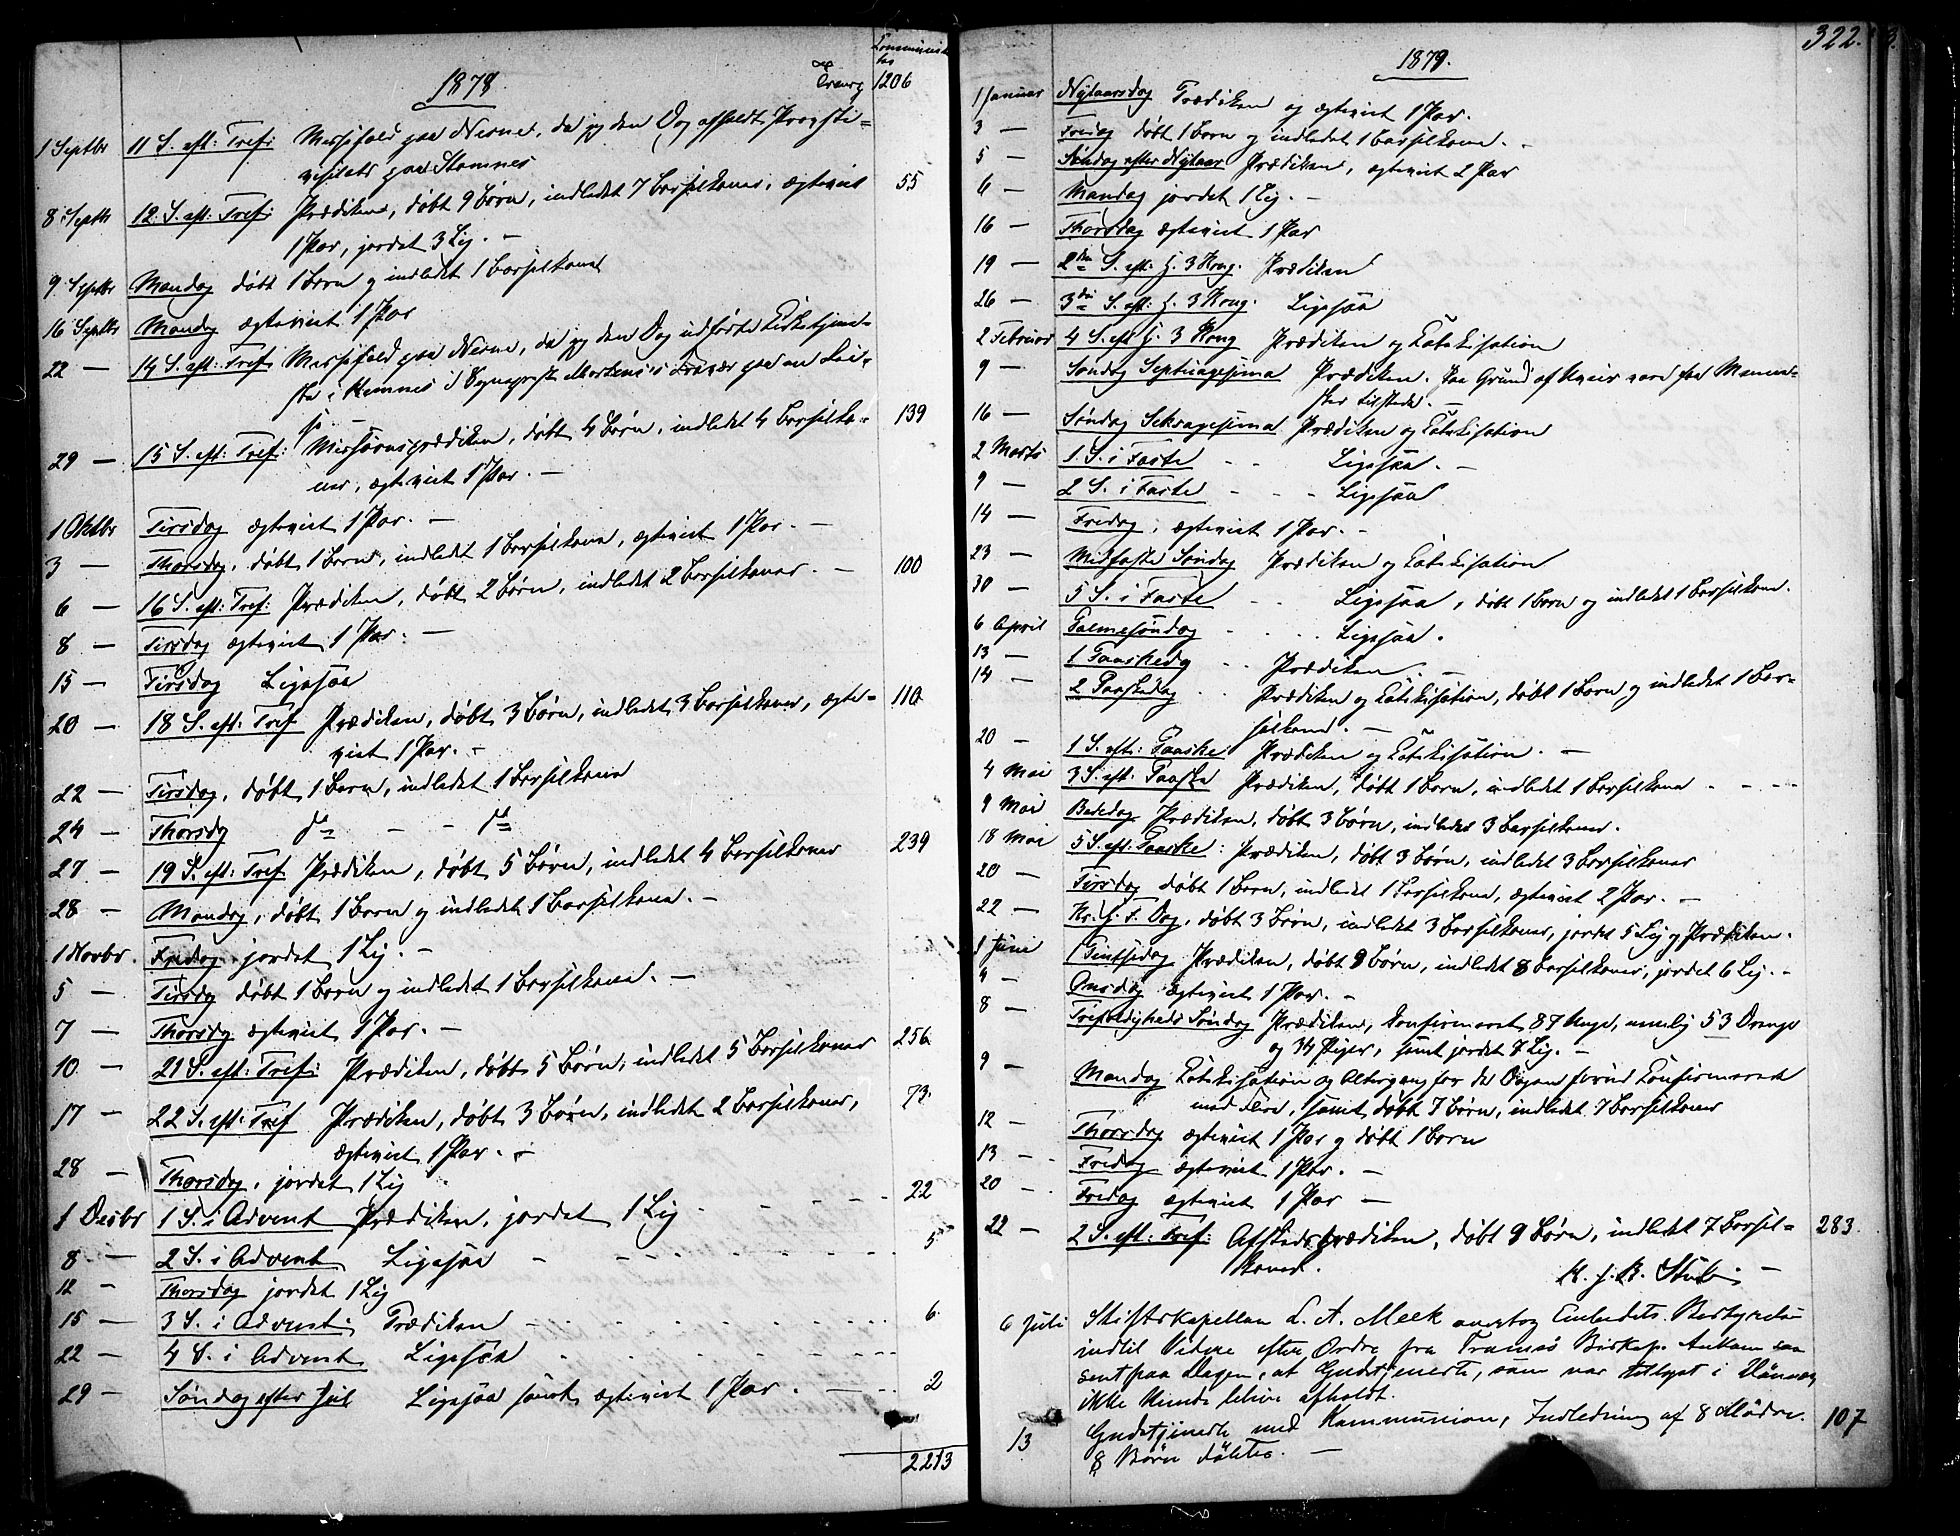 Communican-
ter
1878.
Transp 1206
1 Septbr 11 S. eft: Tref: Messefald paa Nesne, da jeg den Dag afholdt Provsti-
visitats paa Stamnes
8 Septbr 12. S. eft: Tref: Prædiken, døbt 9 Børn, indledet 7 Barselkoner, ægteviet 55
1 Par, jordet 3 Lig. –
9 Septbr Mandag døbt 1 Barn og indledet 1 Barselkone
16 Septbr Mandag ægteviet 1 Par
22 – 14 S. eft: Tref. Messefald paa Nesne, da jeg den Dag udførte Kirketjene-
ste i Hemnes i Sognepræst Mortensens Fravær paa en Rei-
se –
29 – 15 S. eft: Tref: Messe prædiken, døbt 4 Børn, indledet 4 Barselko- 139
ner, ægteviet 1 Par. –
1 Oktbr Tirsdag ægteviet 1 Par. –
3 – Thorsdag, døbt 1 Barn, indledet 1 Barselkone, ægteviet 1 Par. –
6 – 16 S. eft: Tref: Prædiken, døbt 2 Børn, indledet 2 Barselkoner. – 100
8 – Tirsdag ægteviet 1 Par. –
15 – Tirsdag Ligesaa
20 – 18 S. eft: Tref Prædiken, døbt 3 Børn, indledet 3 Barselkoner, ægte- 110
viet 1 Par. –
22 – Tirsdag, døbt 1 Barn, indledet 1 Barselkone
24 – Thorsdag do – – do
27 – 19 S. eft: Tref Prædiken, døbt 5 Børn, indledet 4 Barselkoner 239
28 – Mandag, døbt 1 Barn og indledet 1 Barselkone. –
1 Novbr. Fredag jordet 1 Lig. –
5 – Tirsdag døbt 1 Barn og indledet 1 Barselkone. –
7 – Thorsdag ægteviet 1 Par. –
10 – 21 S. eft: Tref: Prædiken, døbt 5 Børn, indledet 5 Barselkoner 256
17 – 22 S. eft: Tref Prædiken, døbt 3 Børn, indledet 2 Barselkoner, 73.
ægteviet 1 Par. –
28 – Thorsdag, jordet 1 Lig
1 Decbr 1 S. i Advent Prædiken, jordet 1 Lig – – – – 22
8 – 2 S. i Advent Ligesaa – – – – 5
12 – Thorsdag jordet 1 Lig
15 – 3 S. i Advent Prædiken – . . . . . 6.
22 – 4 S. i Advent Ligesaa . . . . . .
29 – Søndag efter Jul Ligesaa samt ægteviet 1 Par. – . . 2
2213
322.
1879.
1 Januar Nytaarsdag Prædiken og ægteviet 1 Par.
3 – Fredag døbt 1 Barn og indledet 1 Barselkone. –
5 – Søndag efter Nytaar Prædiken, ægteviet 2 Par
6 – Mandag jordet 1 Lig. –
16 – Thorsdag ægteviet 1 Par
19 – 2den S. eft: H. 3 Kong. Prædiken
26 – 3die S. eft: H. 3 Kong. Ligesaa
2 Februar 4 S. eft H. 3 Kong Prædiken og Katekisation
9 – Søndag Septuagesima Prædiken. Paa Grund af Uveir vare faa Mennes-
ker tilstede. –
16 – Søndag Seksagesima Prædiken og Katekisation
2 Marts 1. S. i Faste – – Ligesaa. –
9 – 2 S. i Faste – – – Ligesaa
14 – Fredag, ægteviet 1 Par. –
23 – Midfaste Søndag Prædiken og Katekisation
30 – 5 S. i Faste – – Ligesaa, døbt 1 Barn og indledet 1 Barselkone.
6 April Palmesøndag – . . . Ligesaa.
13 – 1 Paaskedag . . Prædiken. –
14 – 2 Paaskedag . . Prædiken og Katekisation, døbt 1 Barn og indledet 1 Bar-
selkone. –
20 – 1 S. eft: Paaske Prædiken og Katekisation. –
4 Mai 3 S. eft: Paaske Prædiken, døbt 1 Barn, indledet 1 Barselkone . – . . .
9 Mai Bededag Prædiken, døbt 3 Børn, indledet 3 Barselkoner.
18 Mai 5 S. eft: Paaske: Prædiken, døbt 3 Børn, indledet 3 Barselkoner
20 – Tirsdag døbt 1 Barn, indledet 1 Barselkone, ægteviet 2 Par. –
22 – Kr. H. F. Dag, døbt 3 Børn, indledet 3 Barselkoner, jordet 5 Lig og Prædiken.
1 Juni 1 Pintsedag Prædiken, døbt 9 Børn, indledet 8 Barselkoner, jordet 6 Lig. –
4 – Onsdag ægteviet 1 Par. –
8 – Trefoldigheds Søndag Prædiken, konfirmeret 87 Unge, nemlig 53 Drenge
og 34 Piger, samt jordet 7 Lig. –
9 – Mandag Katekisation og Altergang for de Dagen forud Konfirmerede
med Flere, samt døbt 7 Børn, indledet 7 Barselkoner
12 – Thorsdag ægteviet 1 Par og døbt 1 Barn
13 – Fredag ægteviet 1 Par. –
20 – Fredag ægteviet 1 Par –
22 – 2 S. eft: Tref: Afskedsprædiken, døbt 9 Børn, indledet 7 Barsel- 283
koner.
6 Juli Stiftskapellan L. A. Meek overtog Embedets Bestyrelse
indtil Videre efter Ordre fra Tromsø Biskop. Ankom saa
sent paa Dagen, at Gudstjeneste, som var tillyst i
ikke kunde blive afholdt.
13 Gudstjeneste med Kommunion, Indledning af 8 Mødre. 107
8 Børn døbtes. –